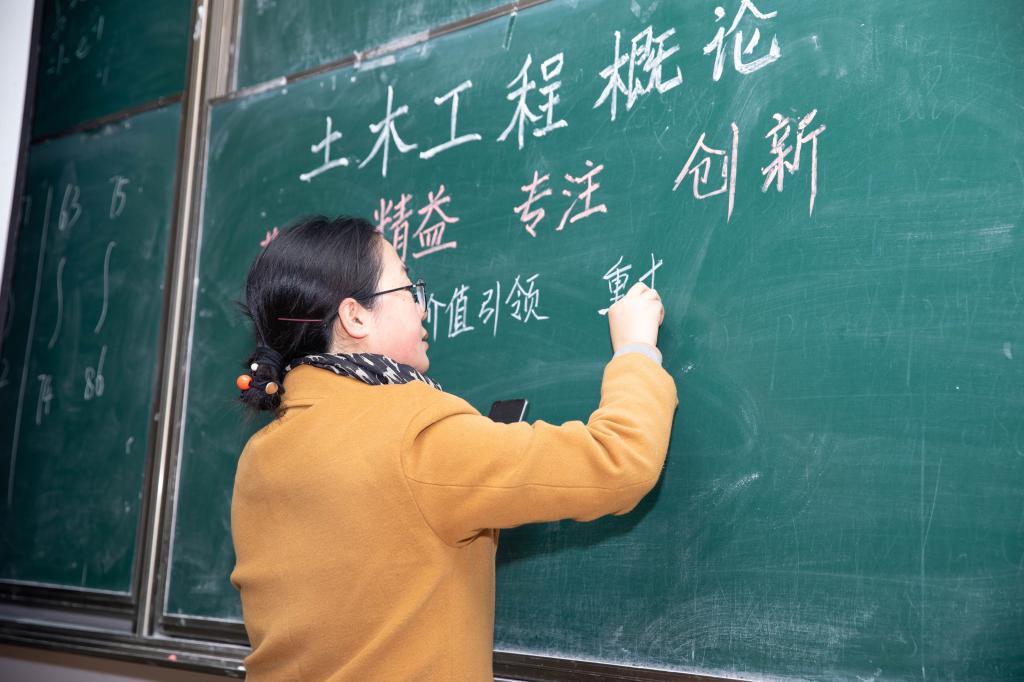 土木工程概论
精益 专注 创新
价值引领 重
63 75
74 86